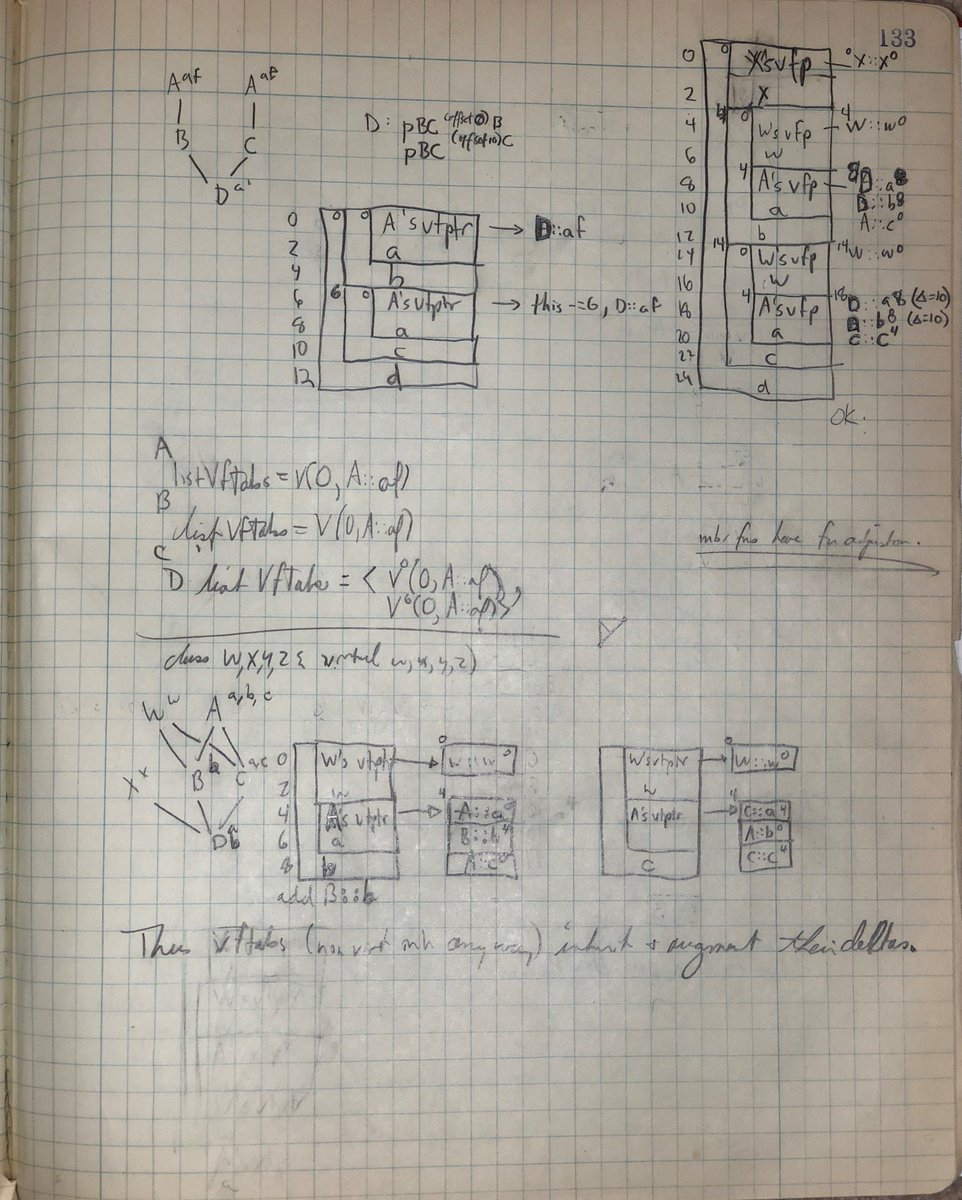 133
A af A af
B C
D a'
D: pBC (offset 0) B
pBC (offset 10) C
0 0 0 A's vfptr → D::af
2 a
4 b
6 6 0 A's vfptr → this-=6, D::af
8 a
10 c
12 d
0 0 X's vfp 0 X::x 0
2 x
4 4 0 W's vfp 4 W::w 0
6 w
8 4 A's vfp 8 D::a 8
10 a D::b 8
A::c 0
12 b
14 14 0 W's vfp 14 W::w 0
16 w
18 4 A's vfp 18 D::a 8 (Δ=10)
20 a D::b 8 (Δ=10)
C::c 4
22 c
24 d
ok.
A
listVftabs = V(0, A::af)
B
listVftabs = V(0, A::af)
C
D list Vftabs = < V 0 (0, A::af),
V 6 (0, A::af)>
mbr fns have fn adjustors.
class W,X,Y,Z { virtual w,x,y,z }
W w A a,b,c
X x B b C a,c
D a b
0 W's vfptr → 0 W::w 0
2 w
4 A's vfptr → 4 A::a 0
6 a B::b 4
8 b A::c 0
add B::b
W's vfptr → 0 W::w 0
w
A's vfptr → 4 C::a 4
A::b 0
c C::c 4
Thus vftabs (non virt inh anyway) inherit + augment their deltas.